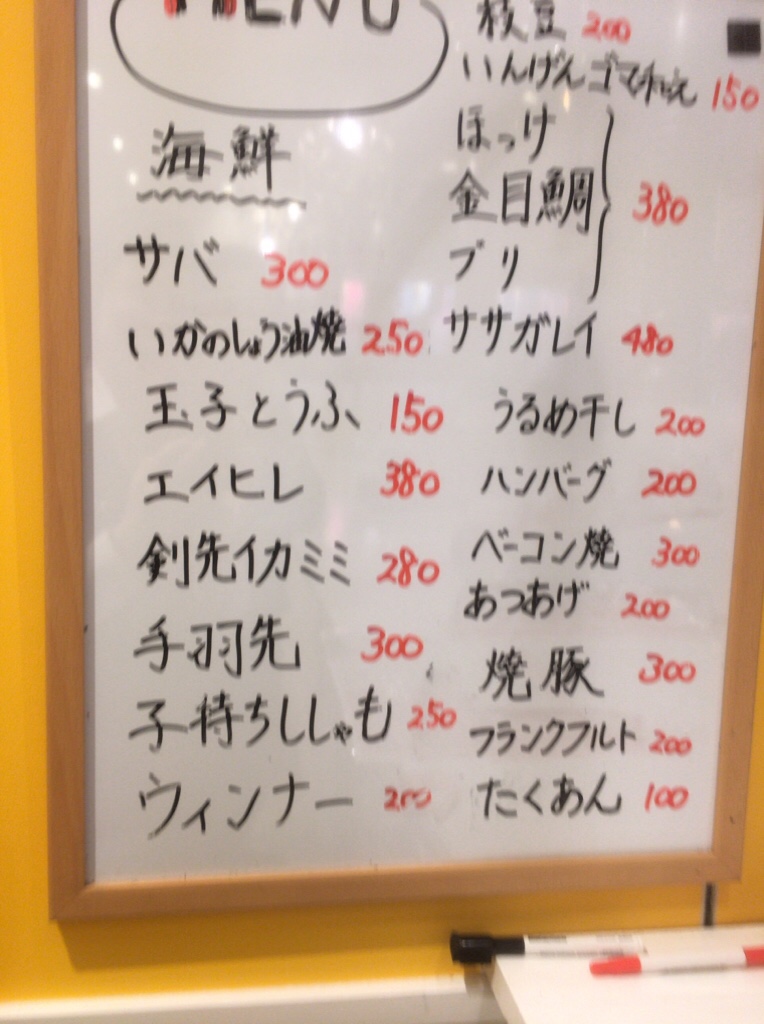 MENU
海鮮
サバ 300
いかのしょう油焼 250
玉子とうふ 150
エイヒレ 380
剣先イカミミ 280
手羽先 300
子持ちししゃも 250
ウィンナー 200
枝豆 200
いんげんゴマ和え 150
ほっけ
金目鯛 380
ブリ
ササガレイ 480
うるめ干し 200
ハンバーグ 200
ベーコン焼 300
あつあげ 200
焼豚 300
フランクフルト 200
たくあん 100